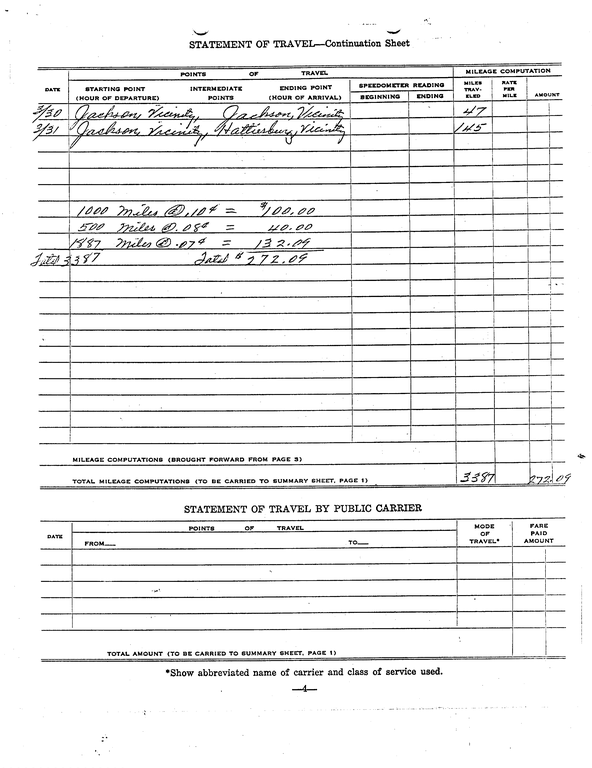 STATEMENT OF TRAVEL—Continuation Sheet
POINTS OF TRAVEL
MILEAGE COMPUTATION
DATE
STARTING POINT (HOUR OF DEPARTURE)
INTERMEDIATE POINTS
ENDING POINT (HOUR OF ARRIVAL)
SPEEDOMETER READING
BEGINNING ENDING
MILES TRAV-ELED
RATE PER MILE
AMOUNT
3/30 Jackson, Vicinity, Jackson, Vicinity 47
3/31 Jackson, Vicinity, Hattiesburg, Vicinity 145
1000 Miles @ .10¢ = $100.00
500 Miles @ .08¢ = 40.00
1887 Miles @ .07¢ = 132.09
Total 3387 Total $ 272.09
MILEAGE COMPUTATIONS (BROUGHT FORWARD FROM PAGE 3)
TOTAL MILEAGE COMPUTATIONS (TO BE CARRIED TO SUMMARY SHEET, PAGE 1) 3387 272.09
STATEMENT OF TRAVEL BY PUBLIC CARRIER
DATE
POINTS OF TRAVEL
FROM— TO—
MODE OF TRAVEL*
FARE PAID AMOUNT
TOTAL AMOUNT (TO BE CARRIED TO SUMMARY SHEET, PAGE 1)
*Show abbreviated name of carrier and class of service used.
—4—